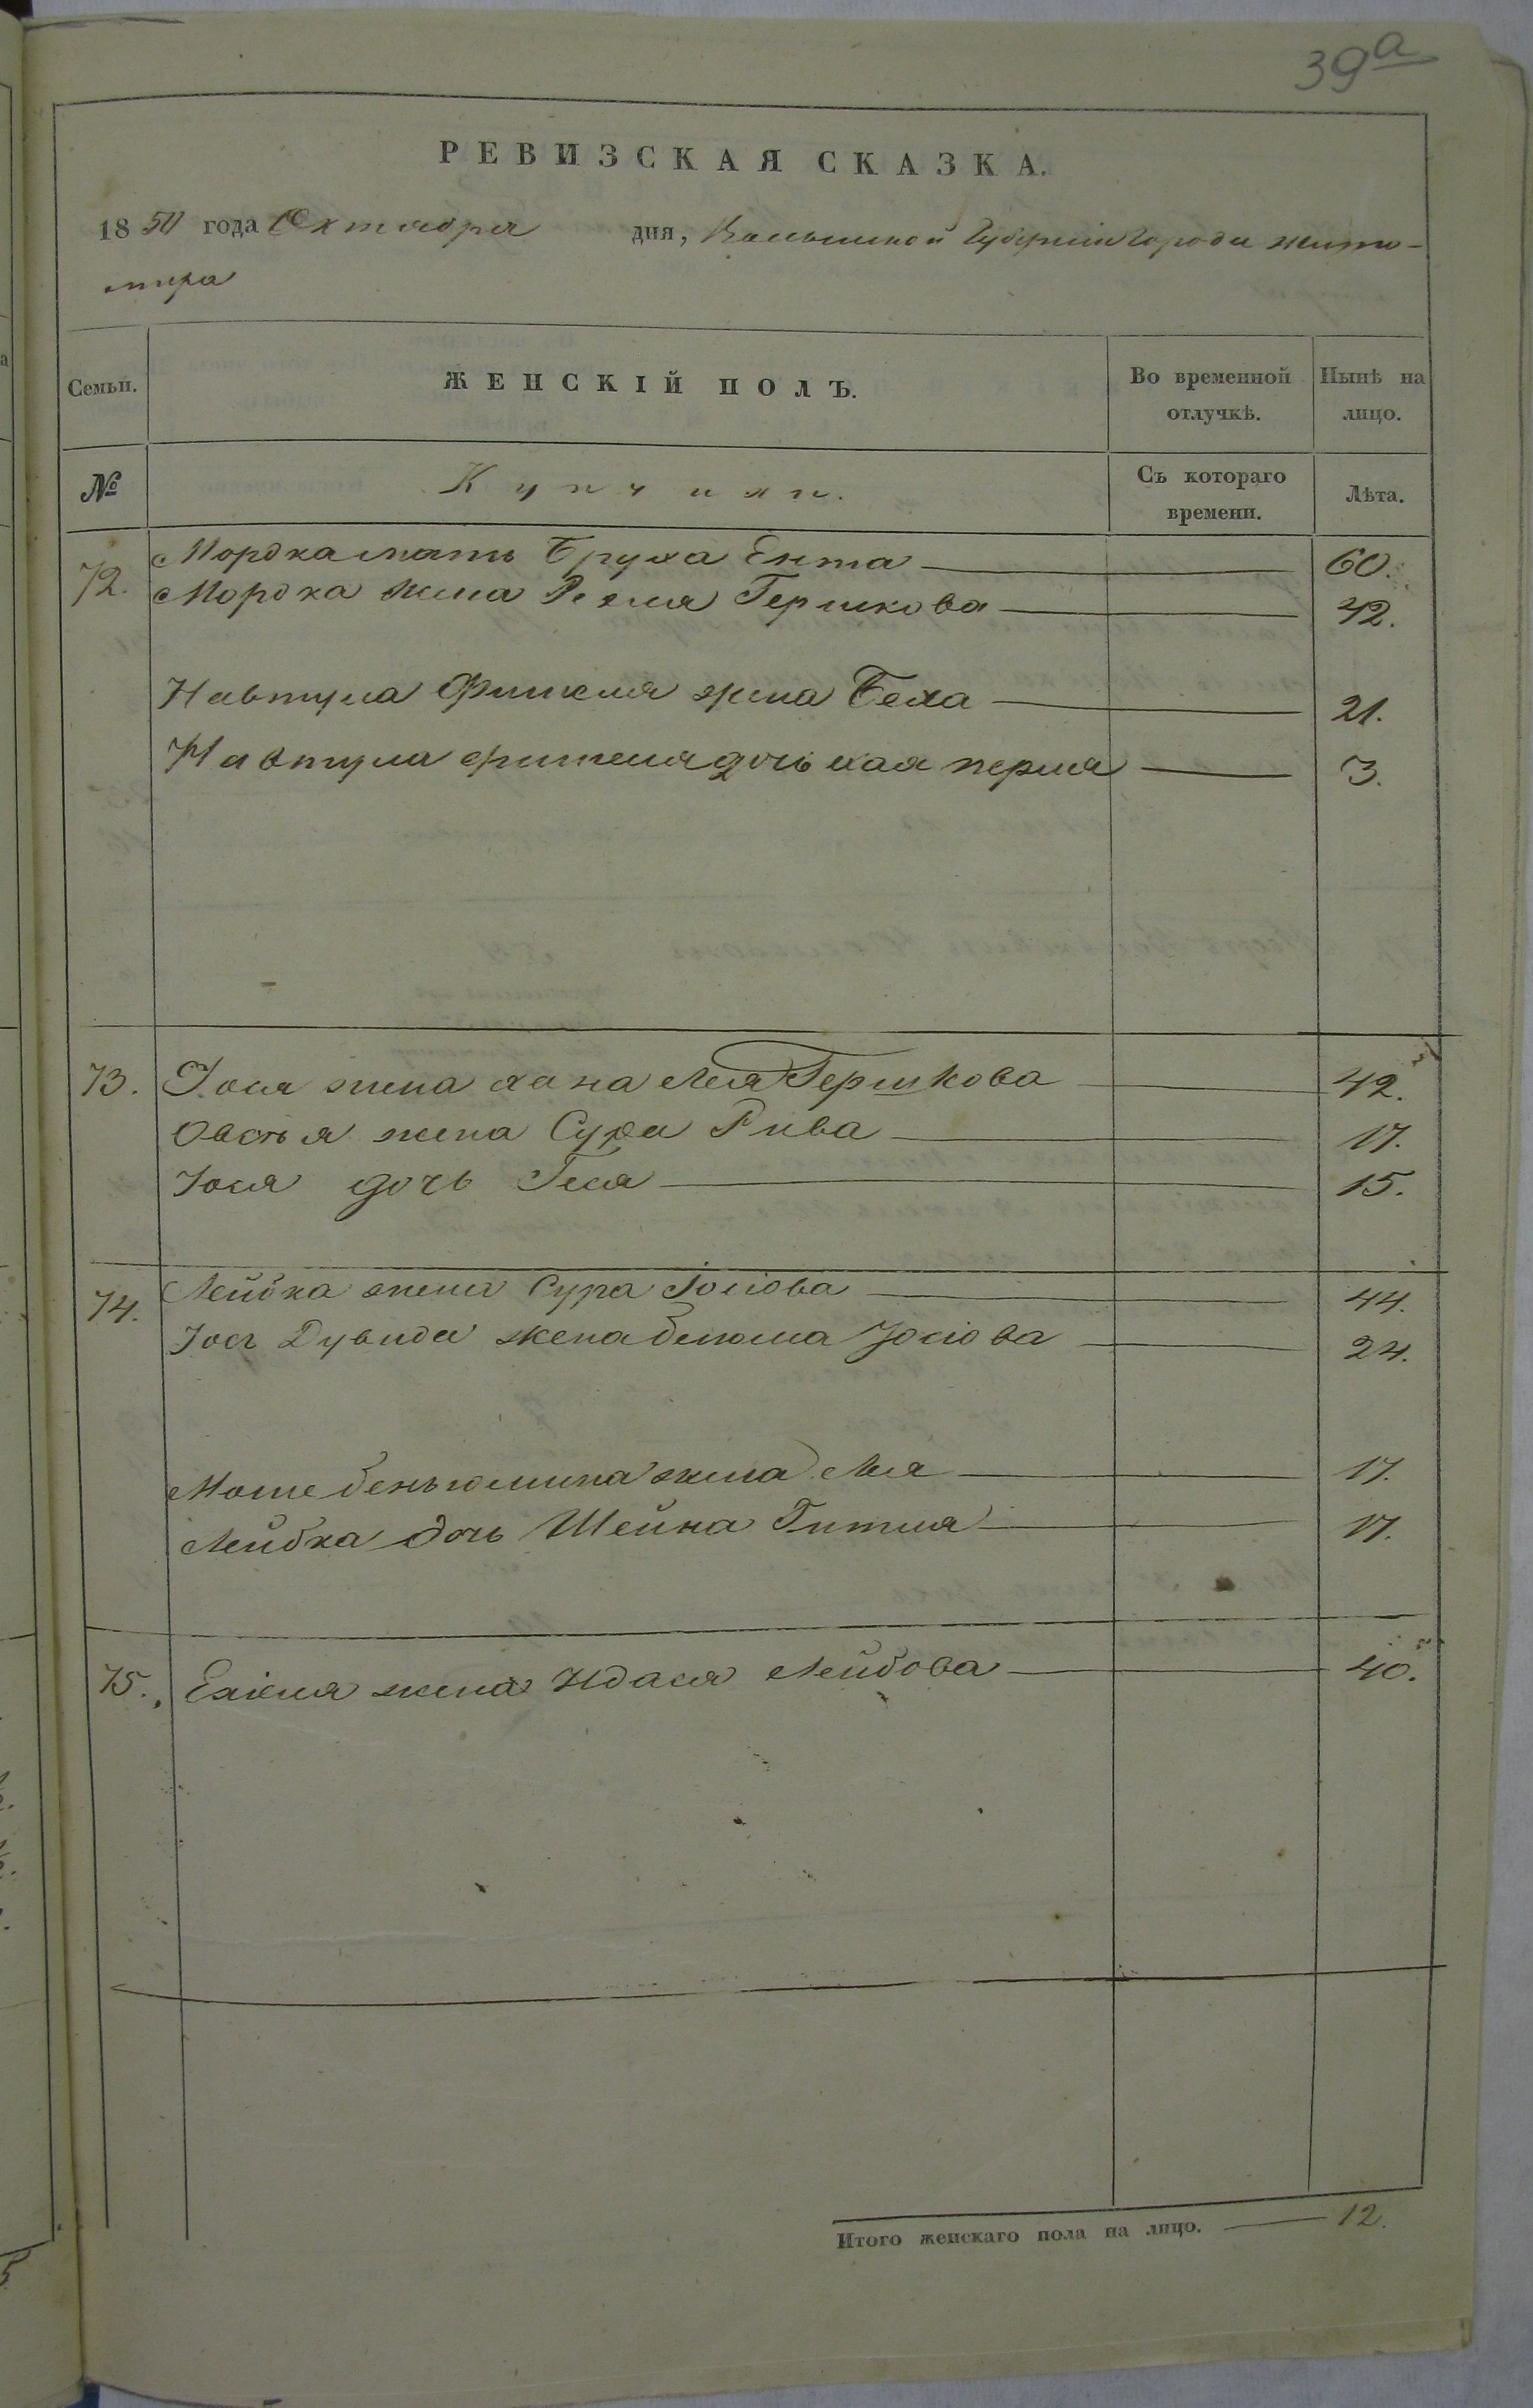 39а
РЕВИЗСКАЯ СКАЗКА.
1850 года Октября дня, Волынской Губерніи Города Жито-
мира
Семьи. ЖЕНСКІЙ ПОЛЪ. Во временной отлучкѣ. Нынѣ на лицо.
№ Съ котораго времени. Лѣта.
72. Мордка мать Бруха Ента 60.
Мордка жена Рехля Гершкова 42.
Навтула Фишеля жена Беха 21.
Навтула фишеля дочь хая перля 3.
73. Іося жена хана Лея Гершкова 42.
Овсья жена Сура Рива 17.
Іося дочь Геся 15.
74. Лейбка жена Сура Іосіова 44.
Іось Дувида жена бейла Іосіова 24.
Моше беньюмина жена Лея 17.
Лейбка дочь Шейна Гитля 17.
75. Ехіеля жена Идася Лейбова 40.
Итого женскаго пола на лицо. 12.